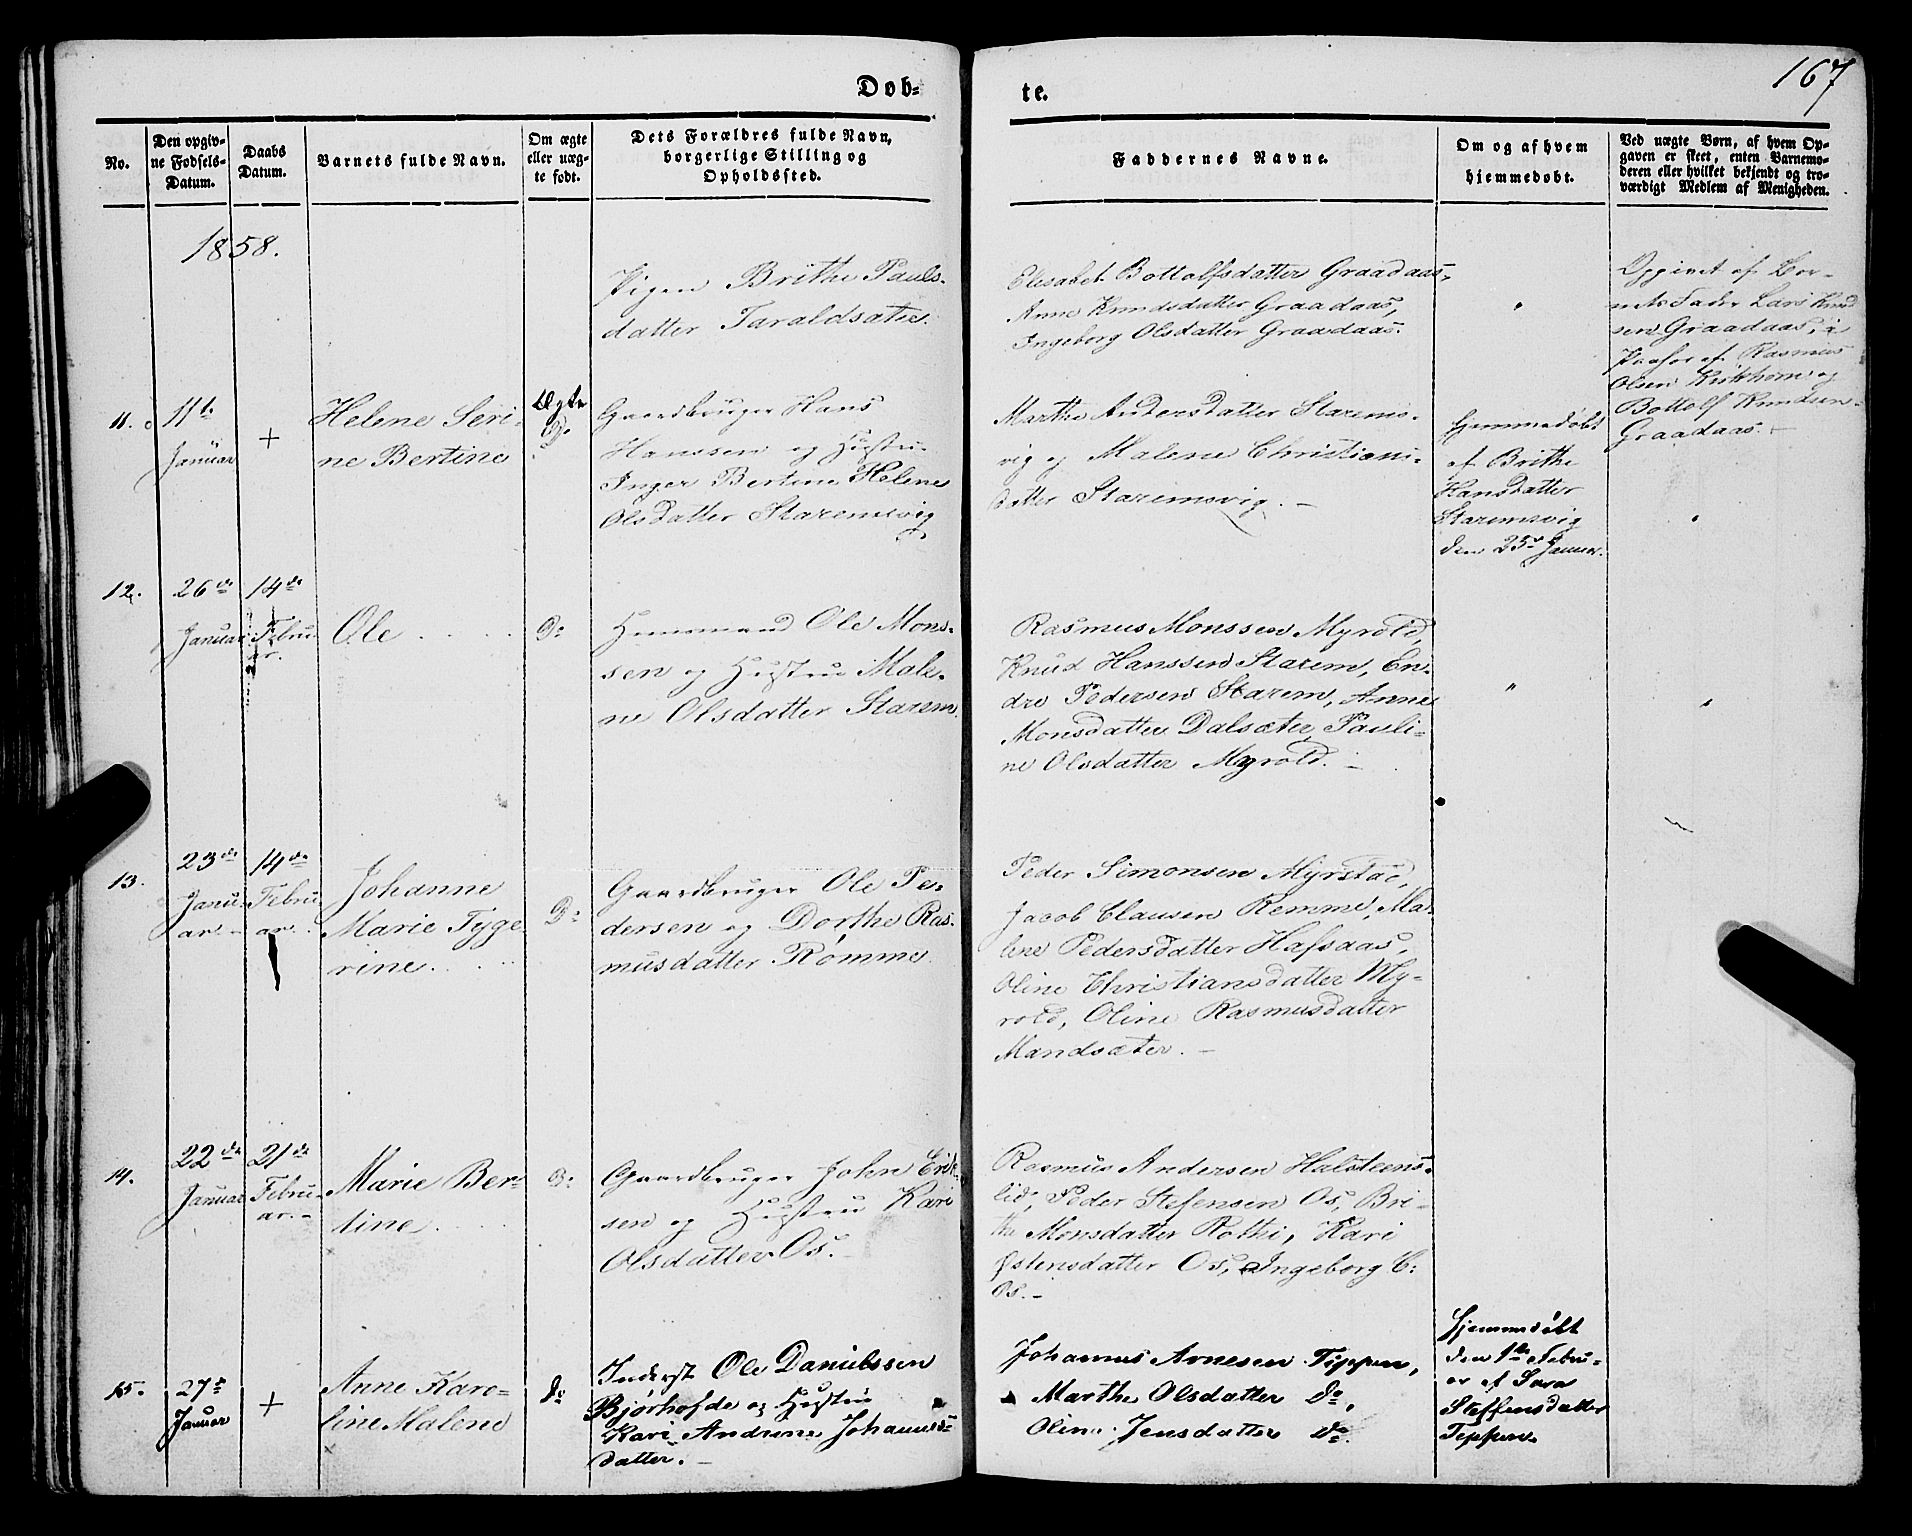 167
Døb-
te.
No.
Den opgiv-
ne Fødsels-
Datum.
Daabs
Datum.
Barnets fulde Navn.
Om ægte
eller uæg-
te født.
Dets Forældres fulde Navn,
borgerlige Stilling og
Opholdssted.
Faddernes Navne.
Om og af hvem
hjemmedøbt.
Ved uægte Børn, af hvem Op-
gaven er skeet, enten Barnemo-
deren eller hvilket bekjendt og tro-
værdigt Medlem af Menigheden.
1858.
Pigen Brithe Pauls-
datter Taraldsæter.
Elisabet Bottolfsdatter Graadaas,
Anne Knudsdatter Graadaas,
Ingeborg Olsdatter Graadaas.
"
Opgivet af Bar-
nets Fader Lars Knud
sen Graadaas, i
Paahør af Rasmus
Olsen Kirkhorn og
Bottolf Knudsen
Graadaas. -
11.
11te
Januar
+
Helene Seri-
ne Bertine
Ægte
Do
Gaardbruger Hans
Hanssen og Hustru
Inger Bertine Helene
Olsdatter Staremsvig
Marthe Andersdatter Starems-
vig og Malene Christians-
datter Staremsvig. -
Hjemmedøbt
af Brithe
Hansdatter
Staremsvig
den 23de Januar.
"
12.
26de
Januar
14de
Febru-
ar.
Ole
Do
Huusmand Ole Mons-
sen og Hustru Male-
ne Olsdatter Starem.
Rasmus Monssen Myrold,
Knud Hanssen Starem, En-
dre Pedersen Starem, Anne
Monsdatter Dalsæter, Pauli-
ne Olsdatter Myrold. -
"
"
13.
23de
Janu-
ar. -
14de
Febru-
ar.
Johanne
Marie Tyge
rine.
Do
Gaardbruger Ole Pe-
dersen og Dorthe Ras-
musdatter Rømme.
Peder Simonsen Myrstad,
Jacob Clausen Remme, Ma-
lene Pedersdatter Hafsaas,
Oline Christiansdatter My-
rold, Oline Rasmusdatter
Mandsæter. -
14.
22de
Januar
21de
Febru-
ar. -
Marie Ber-
tine
Do
Gaardbruger John Erik-
sen og Hustru Kari
Olsdatter Os. -
Rasmus Andersen Halsteens-
lid, Peder Stefensen Os, Bri-
the Monsdatter Rothi, Kari
Østensdatter Os, Ingeborg C:
Os. -
15.
27de
Januar
+
Anne Karo-
line Malene
do
Inderst Ole Danielssen
Bjørhofde og Hustru
Kari Andrine Johannes-
datter. -
Johannes Arnesen Tippen,
Marthe Olsdatter do,
Oline Jensdatter do.
Hjemmedøbt
den 1te Febru-
ar af Sara
Steffensdatter
Tippen.